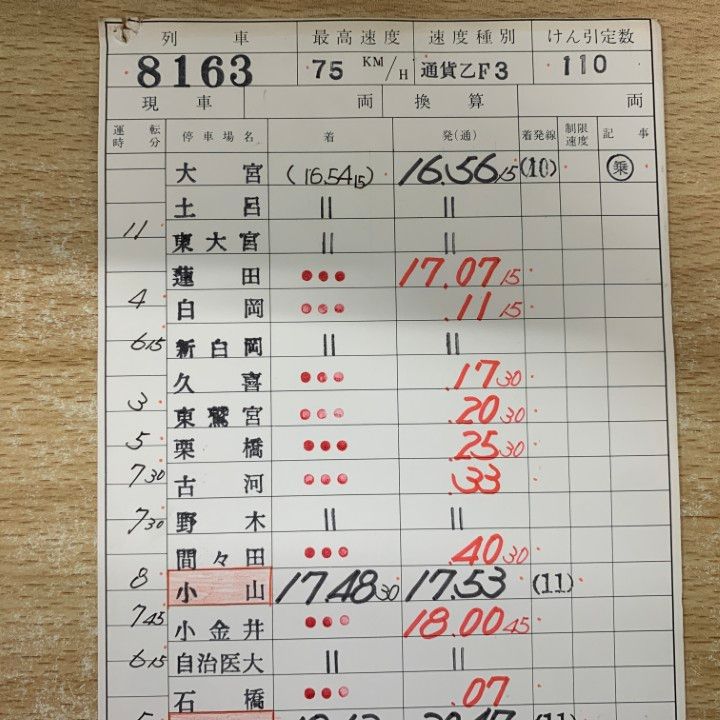 列車 最高速度 速度種別 けん引定数
8163 75 KM/H 通貨乙F3 110
現車 両 換算 両
運転時分 停車場名 着 発(通) 着発線 制限速度 記事
大宮 (16.54 15) 16.56 15 (10) 乗
土呂 || ||
11 東大宮 || ||
蓮田 ●●● 17.07 15
4 白岡 ●●● .11 15
6 15 新白岡 || ||
久喜 ●●● .17 30
3 東鷲宮 ●●● .20 30
5 栗橋 ●●● .25 30
7 30 古河 ●●● .33
7 30 野木 || ||
間々田 ●●● .40 30
8 小山 17.48 30 17.53 (11)
7 45 小金井 ●●● 18.00 45
6 15 自治医大 || ||
石橋 ●●● .07